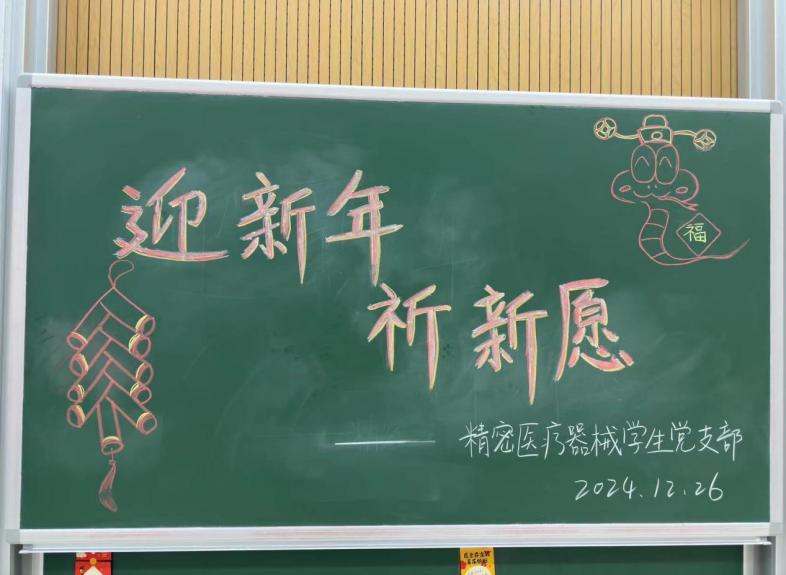 迎新年
祈新愿
福
——精密医疗器械学生党支部
2024.12.26